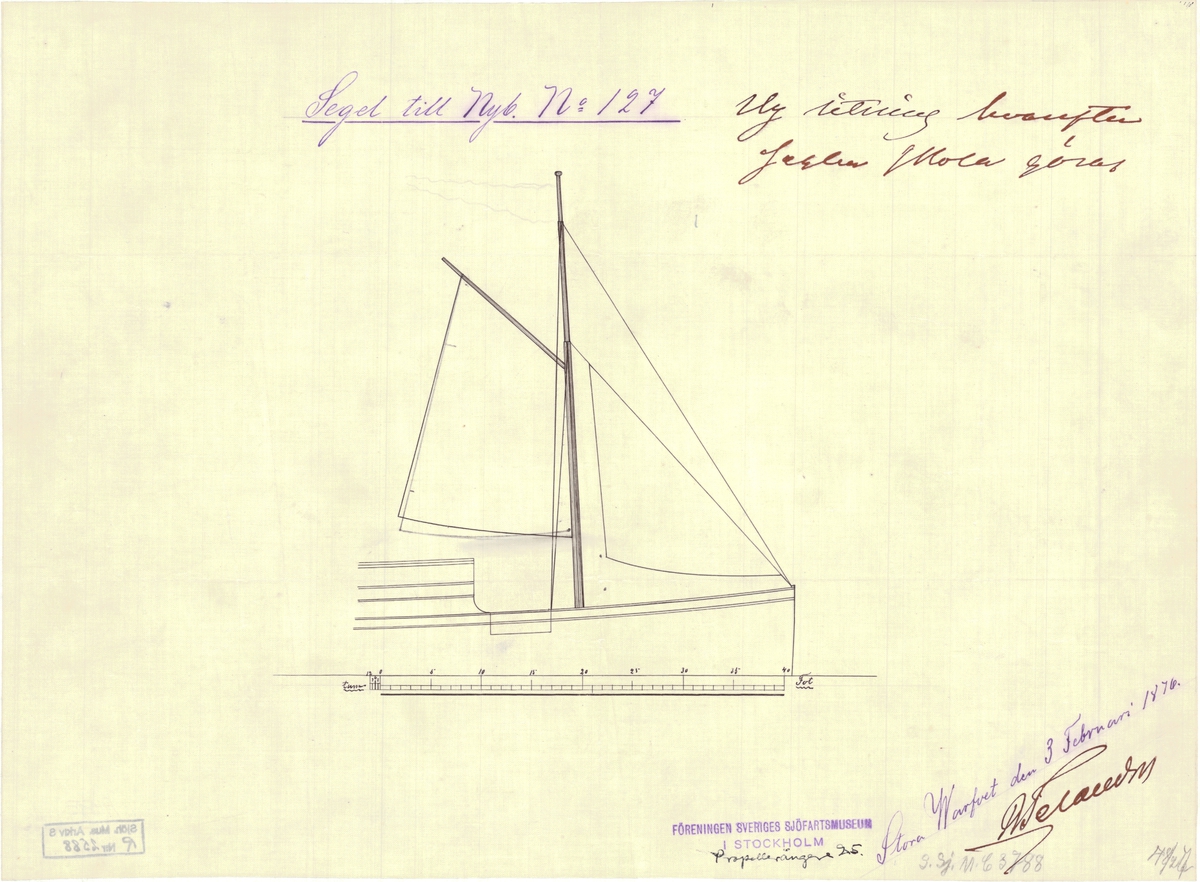 Segel till Nyb. No 127
Ny ritning hvarefter
Seglen skola göras
0 5 10 15 20 25 30 35 40
Tum Fot
Stora Warfvet den 3 Februari 1876.
FÖRENINGEN SVERIGES SJÖFARTSMUSEUM
I STOCKHOLM
Propellerångare 25.
S. Sj. M. C 3788
Sjöh. Mus. Arkiv S
No 2588